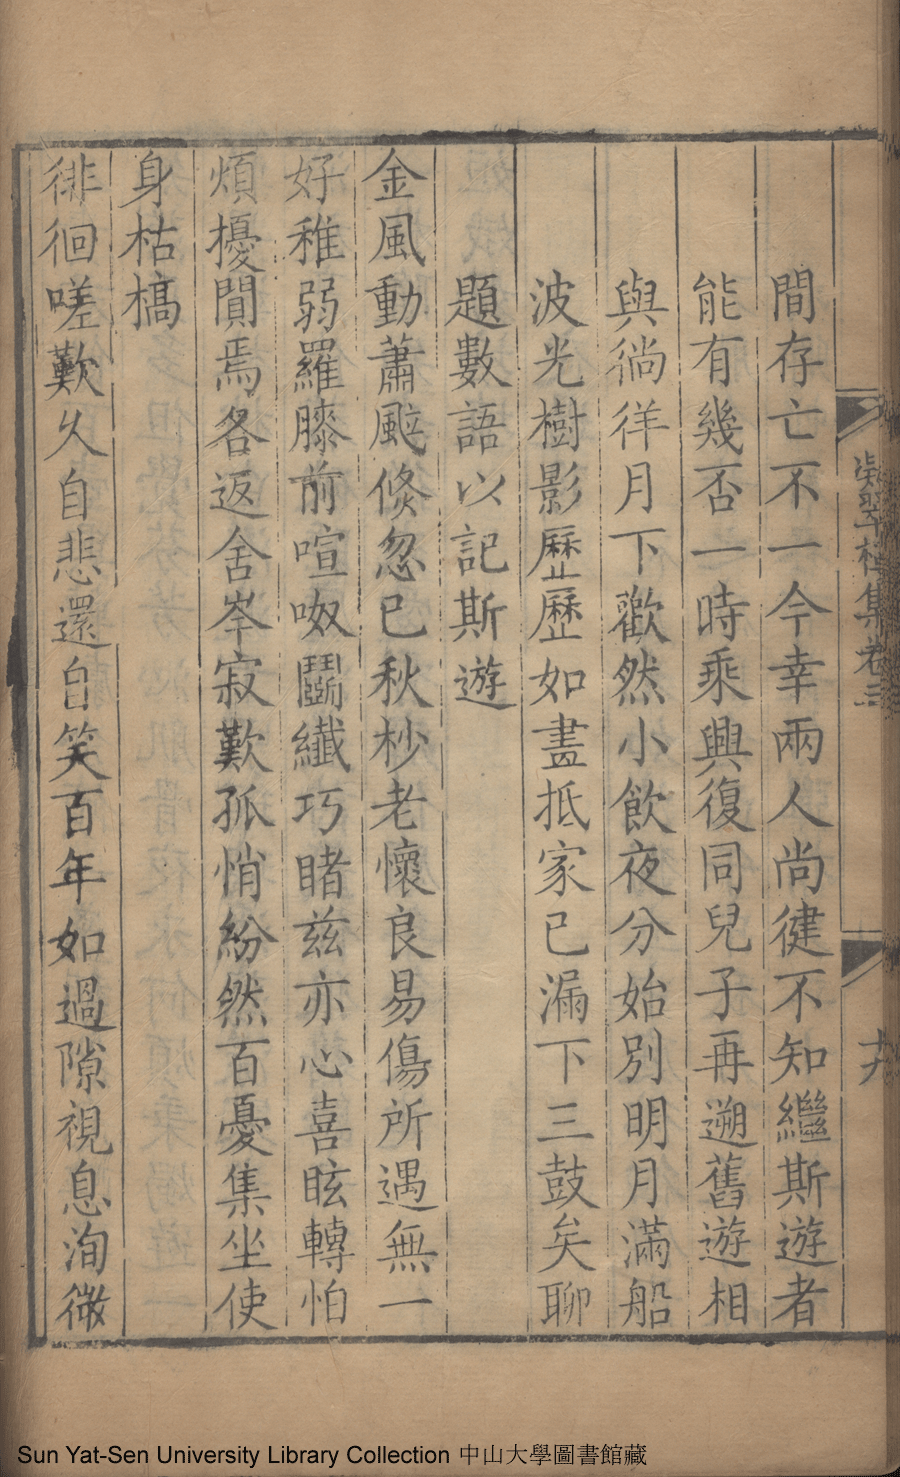 間存亡不一今幸兩人尚健不知繼斯遊者
能有幾否一時乘興復同兒子再遡舊遊相
與徜徉月下歡然小飲夜分始別明月滿船
波光樹影歷歷如畫抵家已漏下三鼓矣聊
題數語以記斯遊
金風動蕭颸倐忽已秋杪老懷良易傷所遇無一
好稚弱羅膝前喧呶鬭纖巧睹茲亦心喜眩轉怕
煩擾閴焉各返舍岑寂歎孤悄紛然百憂集坐使
身枯槁
徘徊嗟歎久自悲還自笑百年如過隙視息洵微
翠樓集卷三
十六
Sun Yat-Sen University Library Collection 中山大學圖書館藏